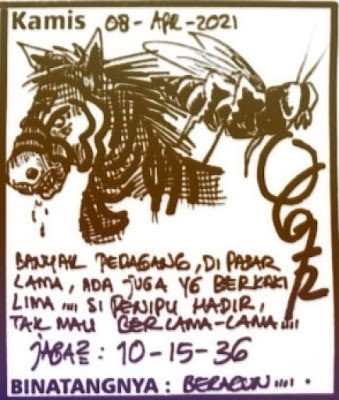 Kamis 08-APR-2021
BANYAK PEDAGANG, DI PASAR
LAMA, ADA JUGA YG BERKAKI
LIMA .... SI PENIPU HADIR,
TAK MAU BERLAMA-LAMA ....
JAGA2 : 10-15-36
BINATANGNYA : BERACUN .... .